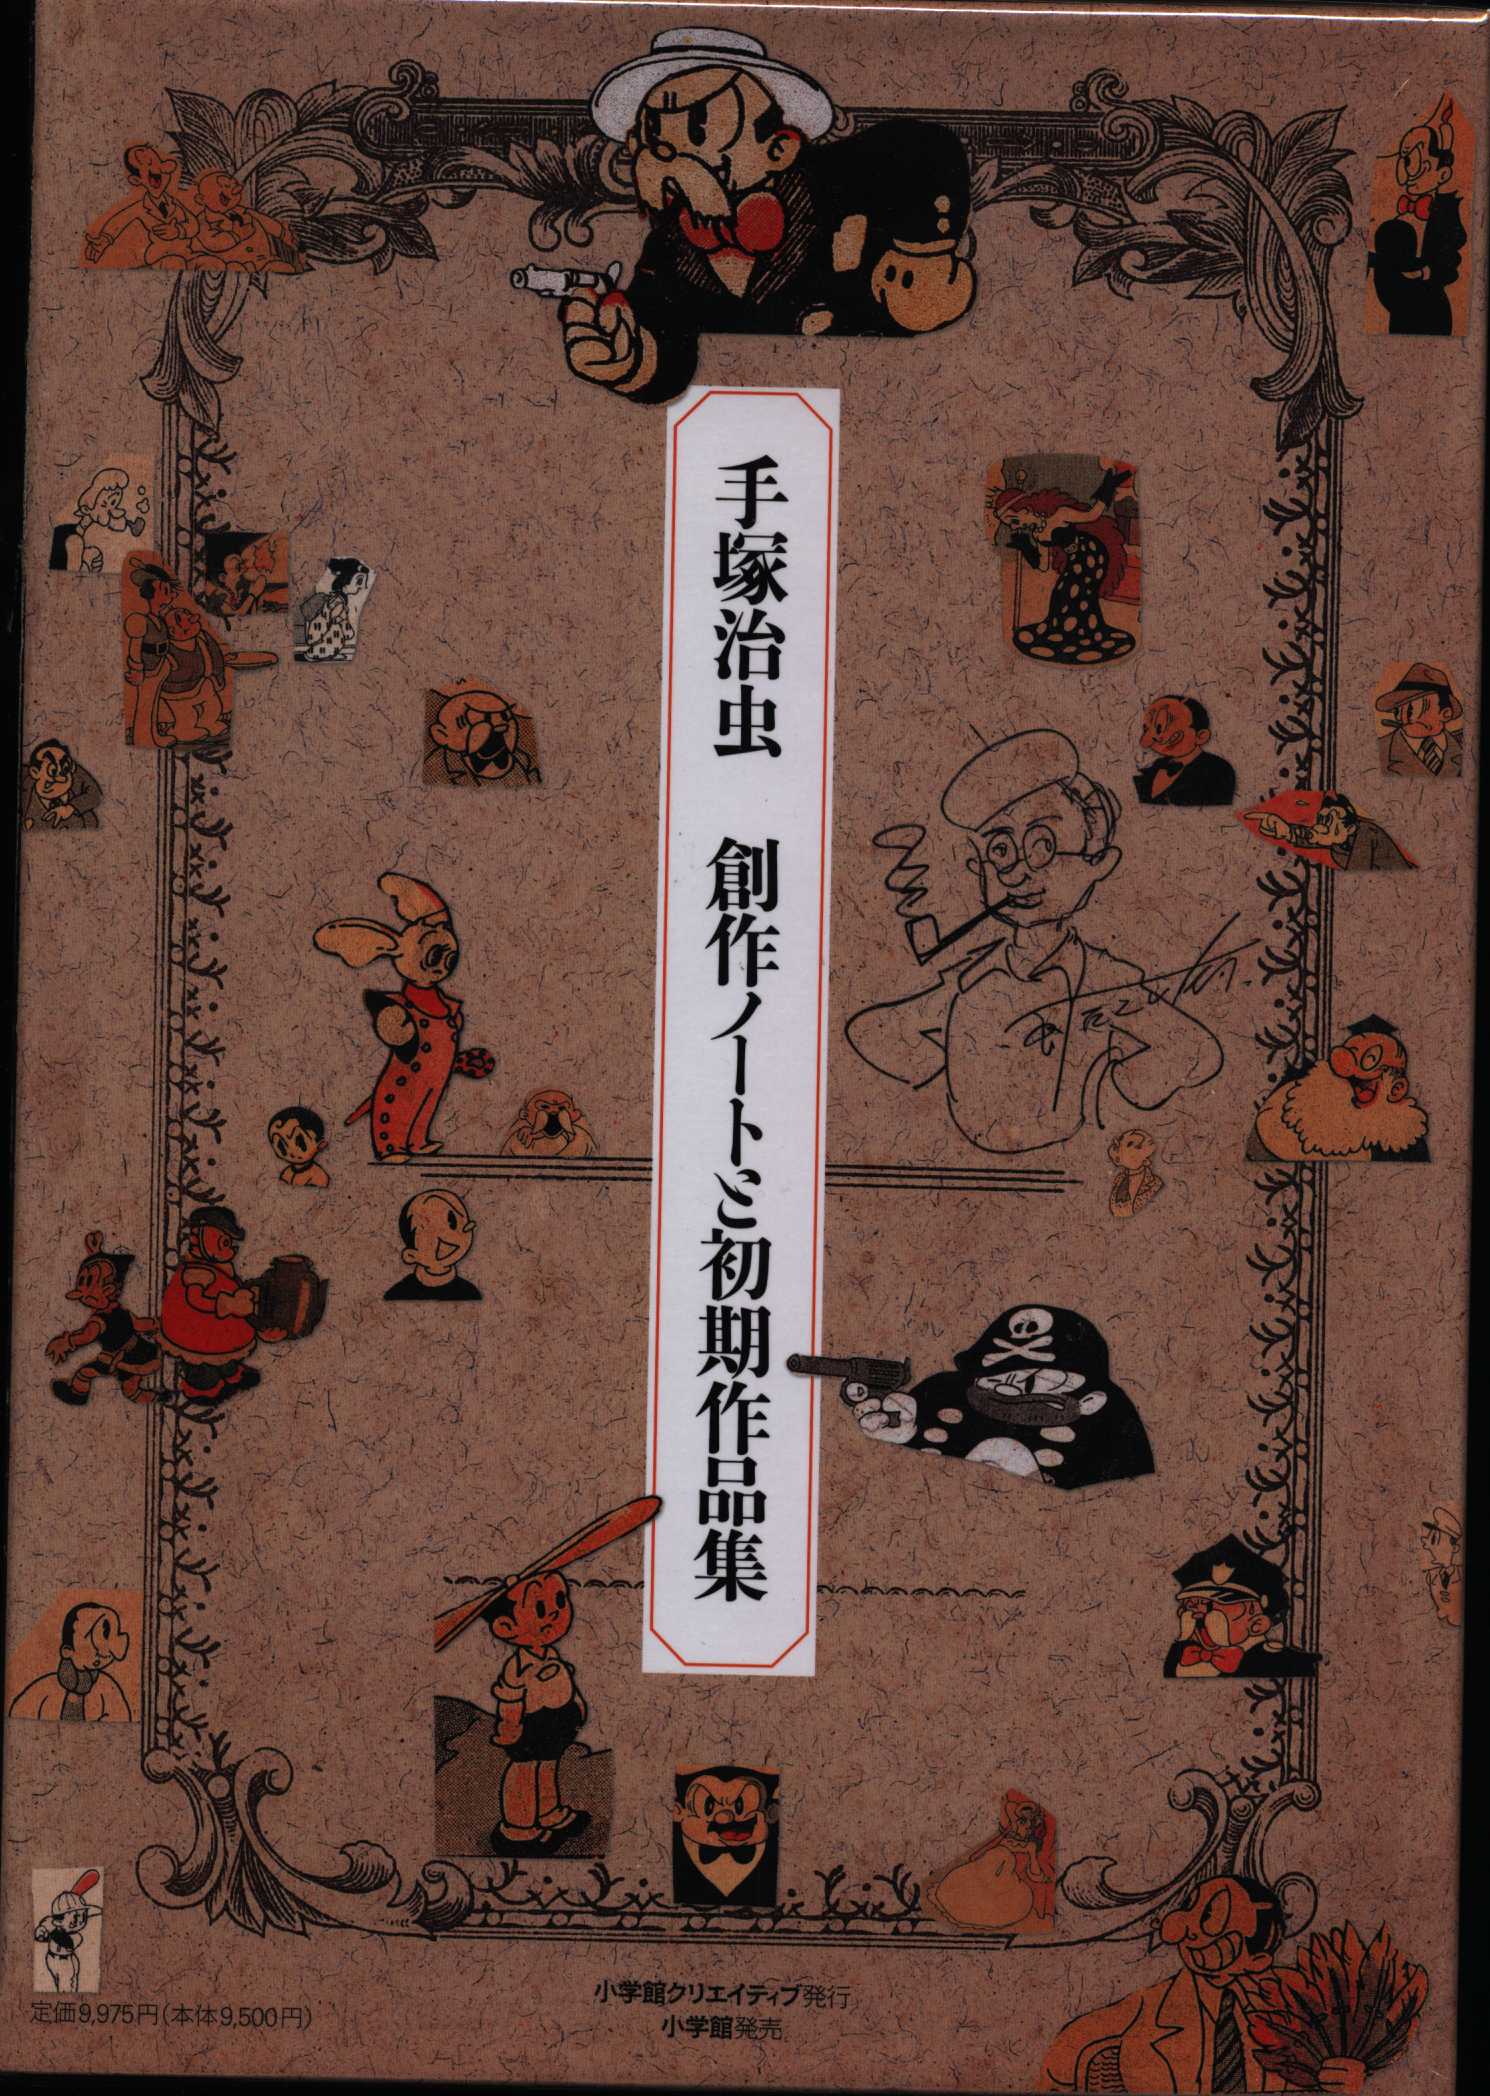 手塚治虫　創作ノートと初期作品集
小学館クリエイティブ発行
小学館発売
定価9,975円(本体9,500円)